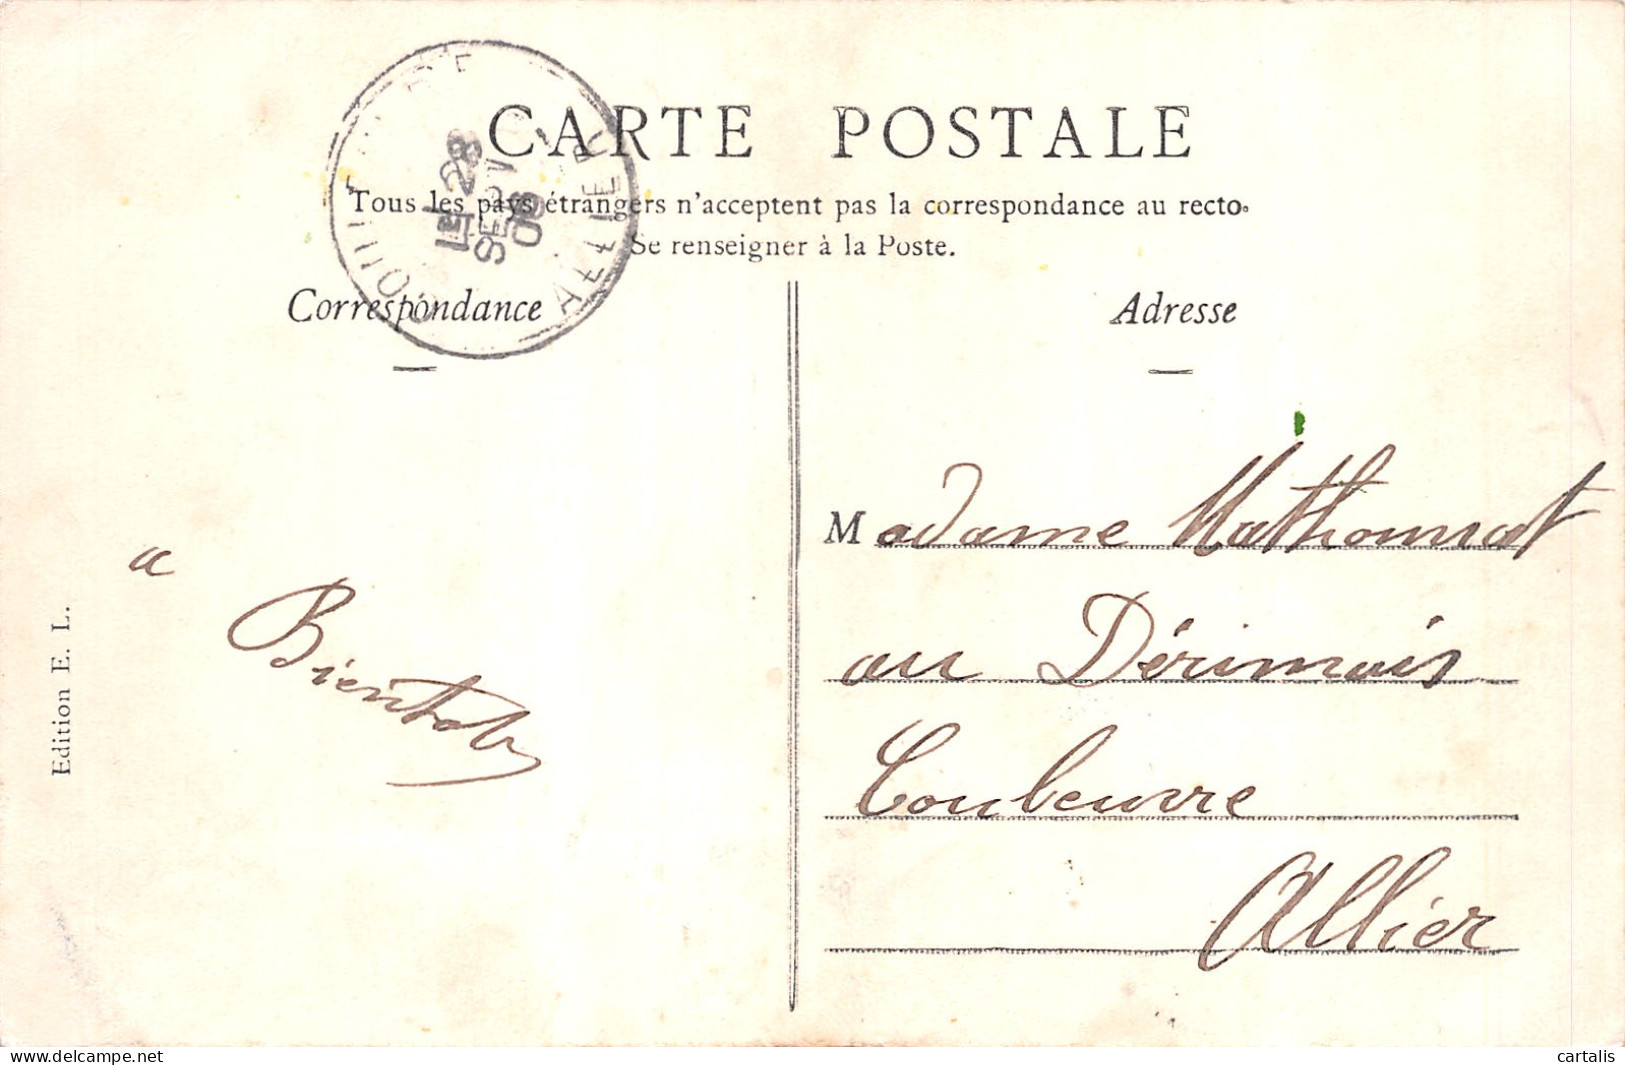 CARTE POSTALE
Tous les pays étrangers n'acceptent pas la correspondance au recto.
Se renseigner à la Poste.
Correspondance
Adresse
28
SEPT
06
ALLIER
a
Bientot
Edition E. L.
Madame Mathonnat
au Dérimais
Couleuvre
Allier
delcampe.net
cartalis